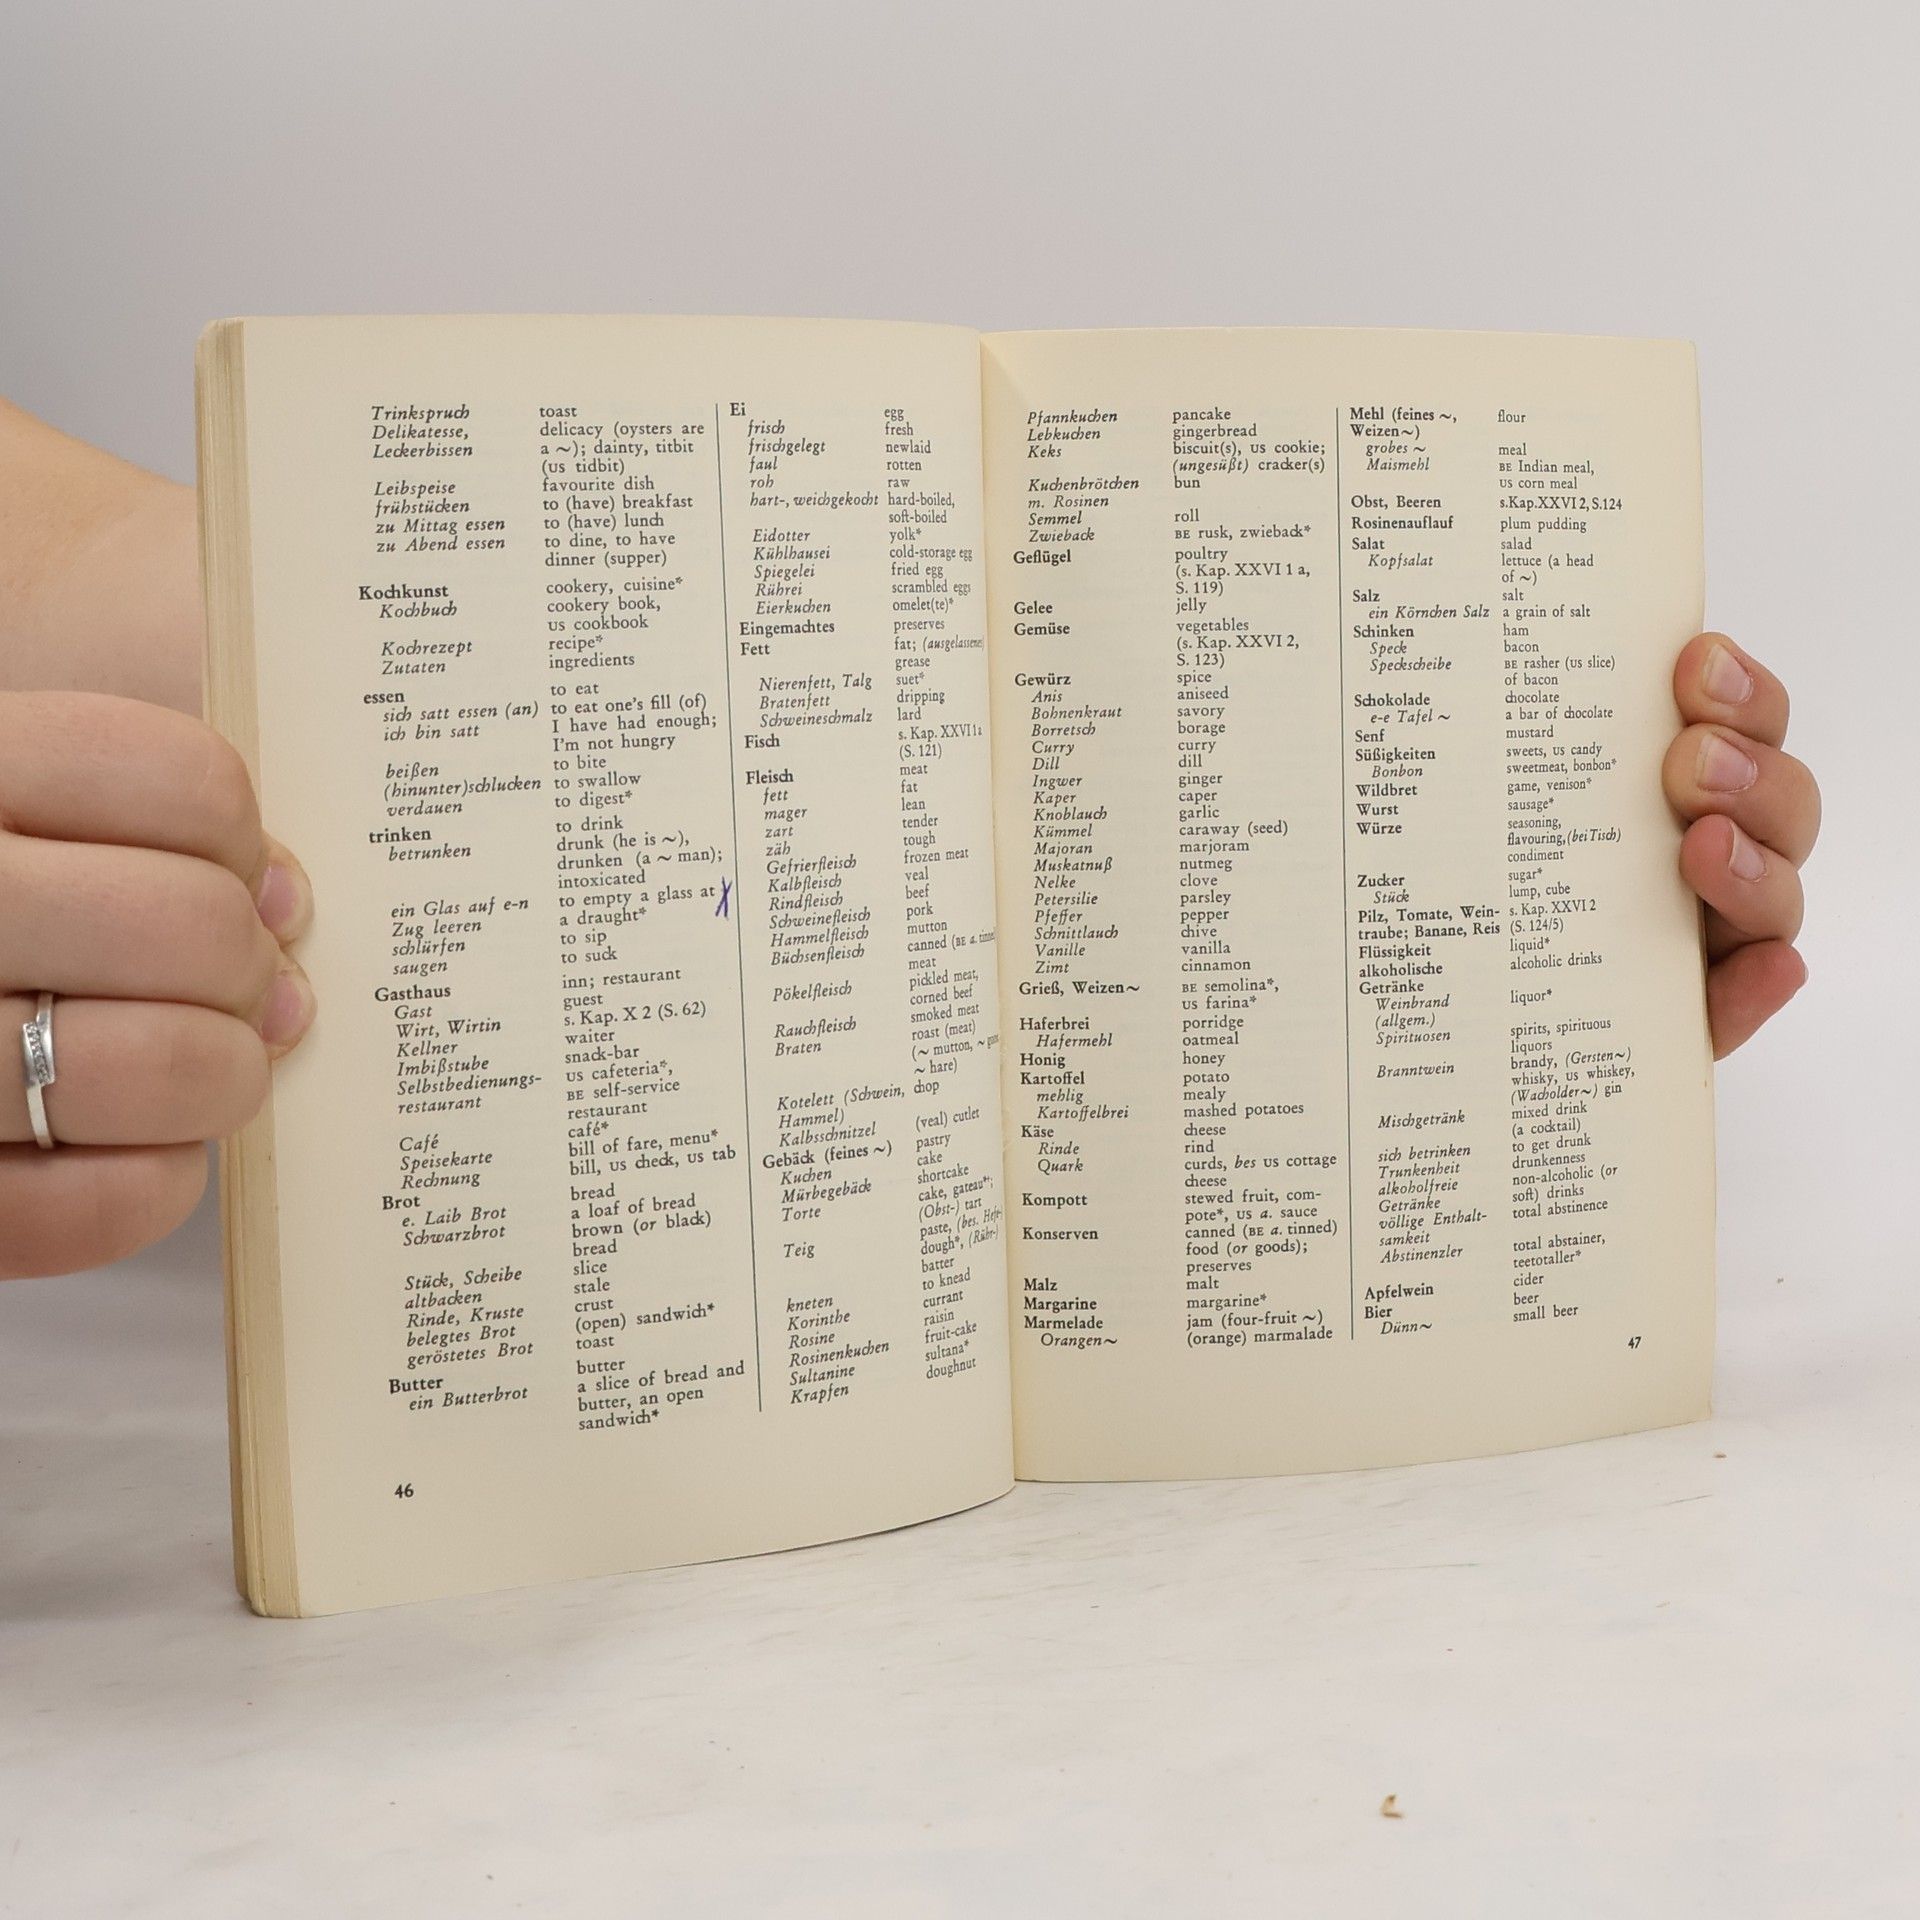 Trinkspruch toast
Delikatesse, delicacy (oysters are
Leckerbissen a ~); dainty, titbit
(US tidbit)
Leibspeise favourite dish
frühstücken to (have) breakfast
zu Mittag essen to (have) lunch
zu Abend essen to dine, to have
dinner (supper)
Kochkunst cookery, cuisine*
Kochbuch cookery book,
US cookbook
Kochrezept recipe*
Zutaten ingredients
essen to eat
sich satt essen (an) to eat one's fill (of)
ich bin satt I have had enough;
I'm not hungry
beißen to bite
(hinunter)schlucken to swallow
verdauen to digest*
trinken to drink
betrunken drunk (he is ~),
drunken (a ~ man);
intoxicated
ein Glas auf e-n to empty a glass at
Zug leeren a draught*
schlürfen to sip
saugen to suck
Gasthaus inn; restaurant
Gast guest
Wirt, Wirtin s. Kap. X 2 (S. 62)
Kellner waiter
Imbißstube snack-bar
Selbstbedienungs- US cafeteria*,
restaurant BE self-service
restaurant
Café café*
Speisekarte bill of fare, menu*
Rechnung bill, US check, US tab
Brot bread
e. Laib Brot a loaf of bread
Schwarzbrot brown (or black)
bread
Stück, Scheibe slice
altbacken stale
Rinde, Kruste crust
belegtes Brot (open) sandwich*
geröstetes Brot toast
Butter butter
ein Butterbrot a slice of bread and
butter, an open
sandwich*
46
Ei egg
frisch fresh
frischgelegt newlaid
faul rotten
roh raw
hart-, weichgekocht hard-boiled,
soft-boiled
Eidotter yolk*
Kühlhausei cold-storage egg
Spiegelei fried egg
Rührei scrambled eggs
Eierkuchen omelet(te)*
Eingemachtes preserves
Fett fat; (ausgelassenes)
grease
Nierenfett, Talg suet*
Bratenfett dripping
Schweineschmalz lard
Fisch s. Kap. XXVI 1a
(S. 121)
Fleisch meat
fett fat
mager lean
zart tender
zäh tough
Gefrierfleisch frozen meat
Kalbfleisch veal
Rindfleisch beef
Schweinefleisch pork
Hammelfleisch mutton
Büchsenfleisch canned (BE a. tinned)
meat
Pökelfleisch pickled meat,
corned beef
Rauchfleisch smoked meat
Braten roast (meat)
(~ mutton, ~
~ hare)
Kotelett (Schwein, chop
Hammel)
Kalbsschnitzel (veal) cutlet
Gebäck (feines ~) pastry
Kuchen cake
Mürbegebäck shortcake
Torte cake, gateau*;
(Obst-) tart
Teig paste, (bes. Hefe-)
dough*, (Rühr-)
batter
kneten to knead
Korinthe currant
Rosine raisin
Rosinenkuchen fruit-cake
Sultanine sultana*
Krapfen doughnut
Pfannkuchen pancake
Lebkuchen gingerbread
Keks biscuit(s), US cookie;
(ungesüßt) cracker(s)
Kuchenbrötchen bun
m. Rosinen
Semmel roll
Zwieback BE rusk, zwieback*
Geflügel poultry
(s. Kap. XXVI 1 a,
S. 119)
Gelee jelly
Gemüse vegetables
(s. Kap. XXVI 2,
S. 123)
Gewürz spice
Anis aniseed
Bohnenkraut savory
Borretsch borage
Curry curry
Dill dill
Ingwer ginger
Kaper caper
Knoblauch garlic
Kümmel caraway (seed)
Majoran marjoram
Muskatnuß nutmeg
Nelke clove
Petersilie parsley
Pfeffer pepper
Schnittlauch chive
Vanille vanilla
Zimt cinnamon
Grieß, Weizen~ BE semolina*,
US farina*
Haferbrei porridge
Hafermehl oatmeal
Honig honey
Kartoffel potato
mehlig mealy
Kartoffelbrei mashed potatoes
Käse cheese
Rinde rind
Quark curds, bes US cottage
cheese
Kompott stewed fruit, com-
pote*, US a. sauce
Konserven canned (BE a. tinned)
food (or goods);
preserves
Malz malt
Margarine margarine*
Marmelade jam (four-fruit ~)
Orangen~ (orange) marmalade
Mehl (feines ~, flour
Weizen~)
grobes ~ meal
Maismehl BE Indian meal,
US corn meal
Obst, Beeren s.Kap.XXVI 2, S.124
Rosinenauflauf plum pudding
Salat salad
Kopfsalat lettuce (a head
of ~)
Salz salt
ein Körnchen Salz a grain of salt
Schinken ham
Speck bacon
Speckscheibe BE rasher (US slice)
of bacon
Schokolade chocolate
e-e Tafel ~ a bar of chocolate
Senf mustard
Süßigkeiten sweets, US candy
Bonbon sweetmeat, bonbon*
Wildbret game, venison*
Wurst sausage*
Würze seasoning,
flavouring, (bei Tisch)
condiment
Zucker sugar*
Stück lump, cube
Pilz, Tomate, Wein- s. Kap. XXVI 2
traube; Banane, Reis (S. 124/5)
Flüssigkeit liquid*
alkoholische alcoholic drinks
Getränke
Weinbrand liquor*
(allgem.)
Spirituosen spirits, spirituous
liquors
Branntwein brandy, (Gersten~)
whisky, US whiskey,
(Wacholder~) gin
Mischgetränk mixed drink
(a cocktail)
sich betrinken to get drunk
Trunkenheit drunkenness
alkoholfreie non-alcoholic (or
Getränke soft) drinks
völlige Enthalt- total abstinence
samkeit
Abstinenzler total abstainer,
teetotaller*
Apfelwein cider
Bier beer
Dünn~ small beer
47